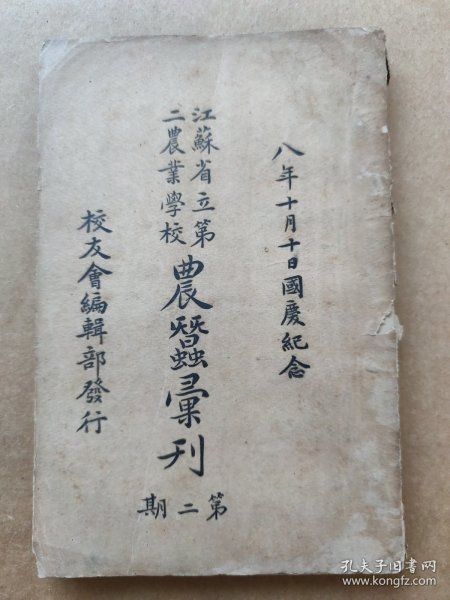 八年十月十日國慶紀念
江蘇省立第
二農業學校
農蠶彙刊
第二期
校友會編輯部發行
孔夫子旧书网
www.kongfz.com